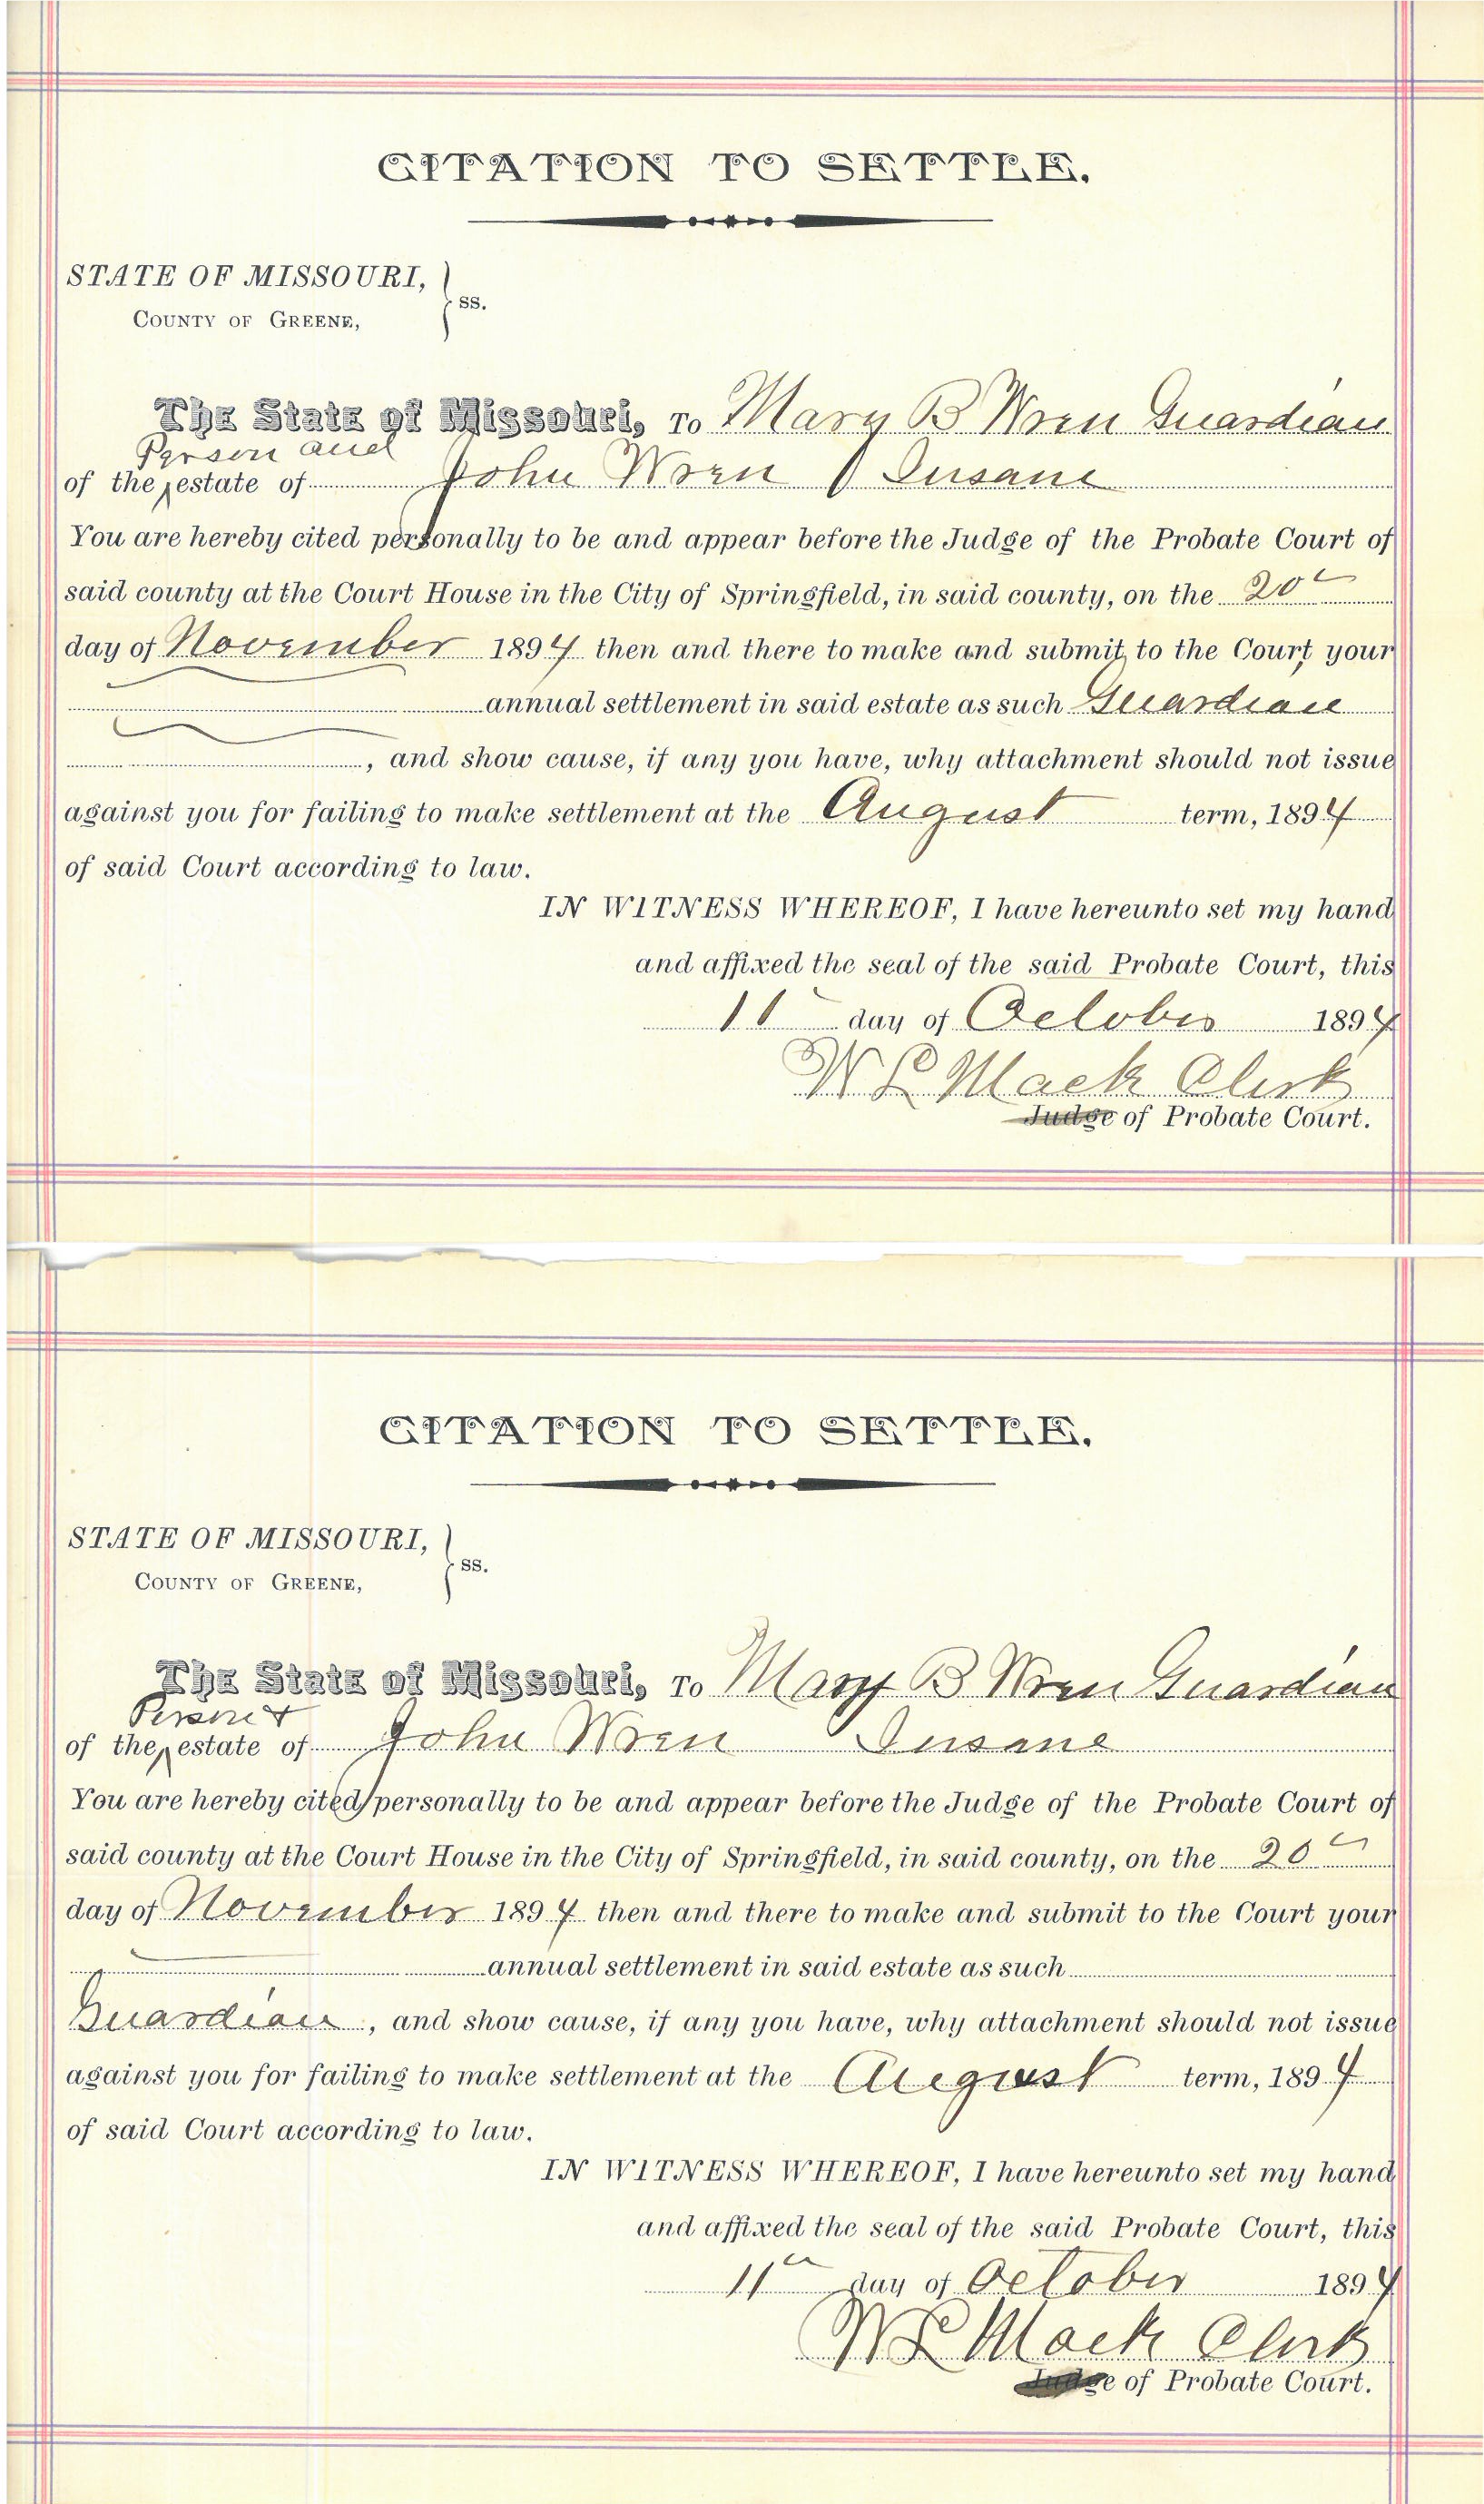 CITATION TO SETTLE.
STATE OF MISSOURI,
COUNTY OF GREENE, } ss.
The State of Missouri, To Mary B Wren Guardian
Person and
of the ‸ estate of John Wren Insane
You are hereby cited personally to be and appear before the Judge of the Probate Court of
said county at the Court House in the City of Springfield, in said county, on the 20"
day of November 1894 then and there to make and submit to the Court your
annual settlement in said estate as such Guardian
, and show cause, if any you have, why attachment should not issue
against you for failing to make settlement at the August term, 1894
of said Court according to law.
IN WITNESS WHEREOF, I have hereunto set my hand
and affixed the seal of the said Probate Court, this
11" day of October 1894
W L Mack Clerk
Judge of Probate Court.
CITATION TO SETTLE.
STATE OF MISSOURI,
COUNTY OF GREENE, } ss.
The State of Missouri, To Mary B Wren Guardian
Person &
of the ‸ estate of John Wren Insane
You are hereby cited personally to be and appear before the Judge of the Probate Court of
said county at the Court House in the City of Springfield, in said county, on the 20"
day of November 1894 then and there to make and submit to the Court your
annual settlement in said estate as such
Guardian, and show cause, if any you have, why attachment should not issue
against you for failing to make settlement at the August term, 1894
of said Court according to law.
IN WITNESS WHEREOF, I have hereunto set my hand
and affixed the seal of the said Probate Court, this
11" day of October 1894
W L Mack Clerk
Judge of Probate Court.